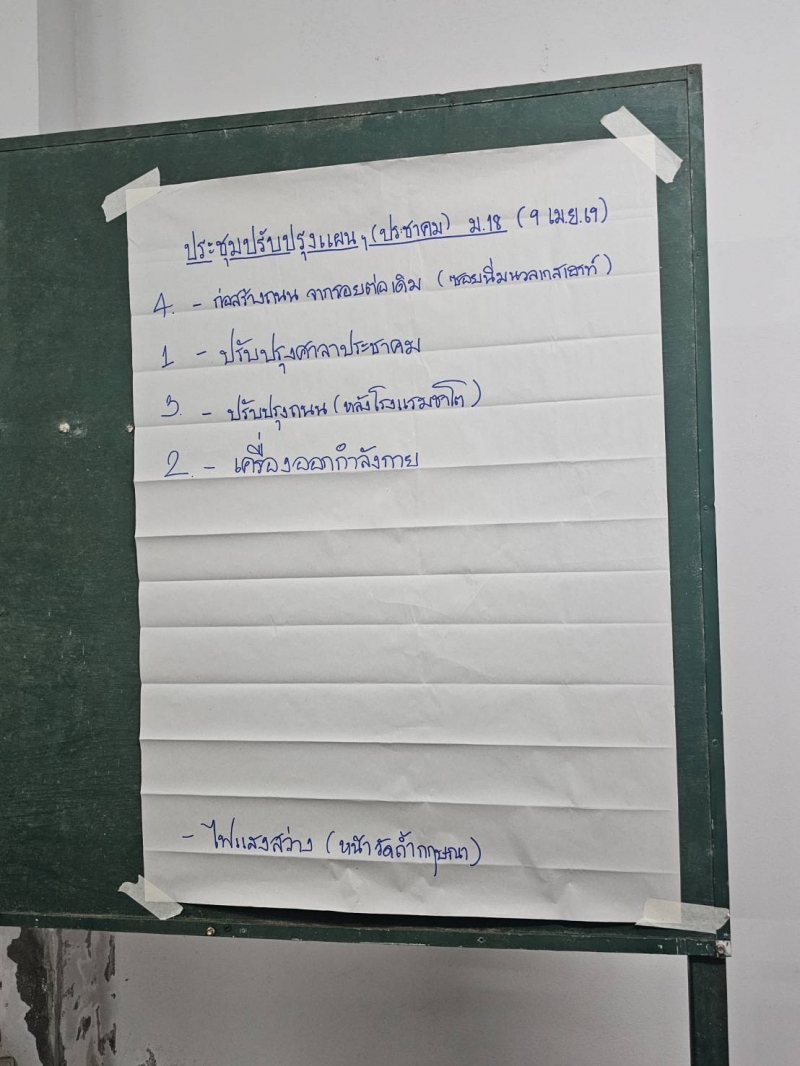 ประชุมปรับปรุงแผนฯ (ประชาคม) ม.18 (9 เม.ย.69)
4. - ก่อสร้างถนน จากรอยต่อเดิม (ซอยนิ่มนวลเกสเฮาท์)
1 - ปรับปรุงศาลาประชาคม
3. - ปรับปรุงถนน (หลังโรงแรมชาโต)
2. - เครื่องออกกำลังกาย
- ไฟแสงสว่าง (หน้าวัดถ้ำกฤษณา)